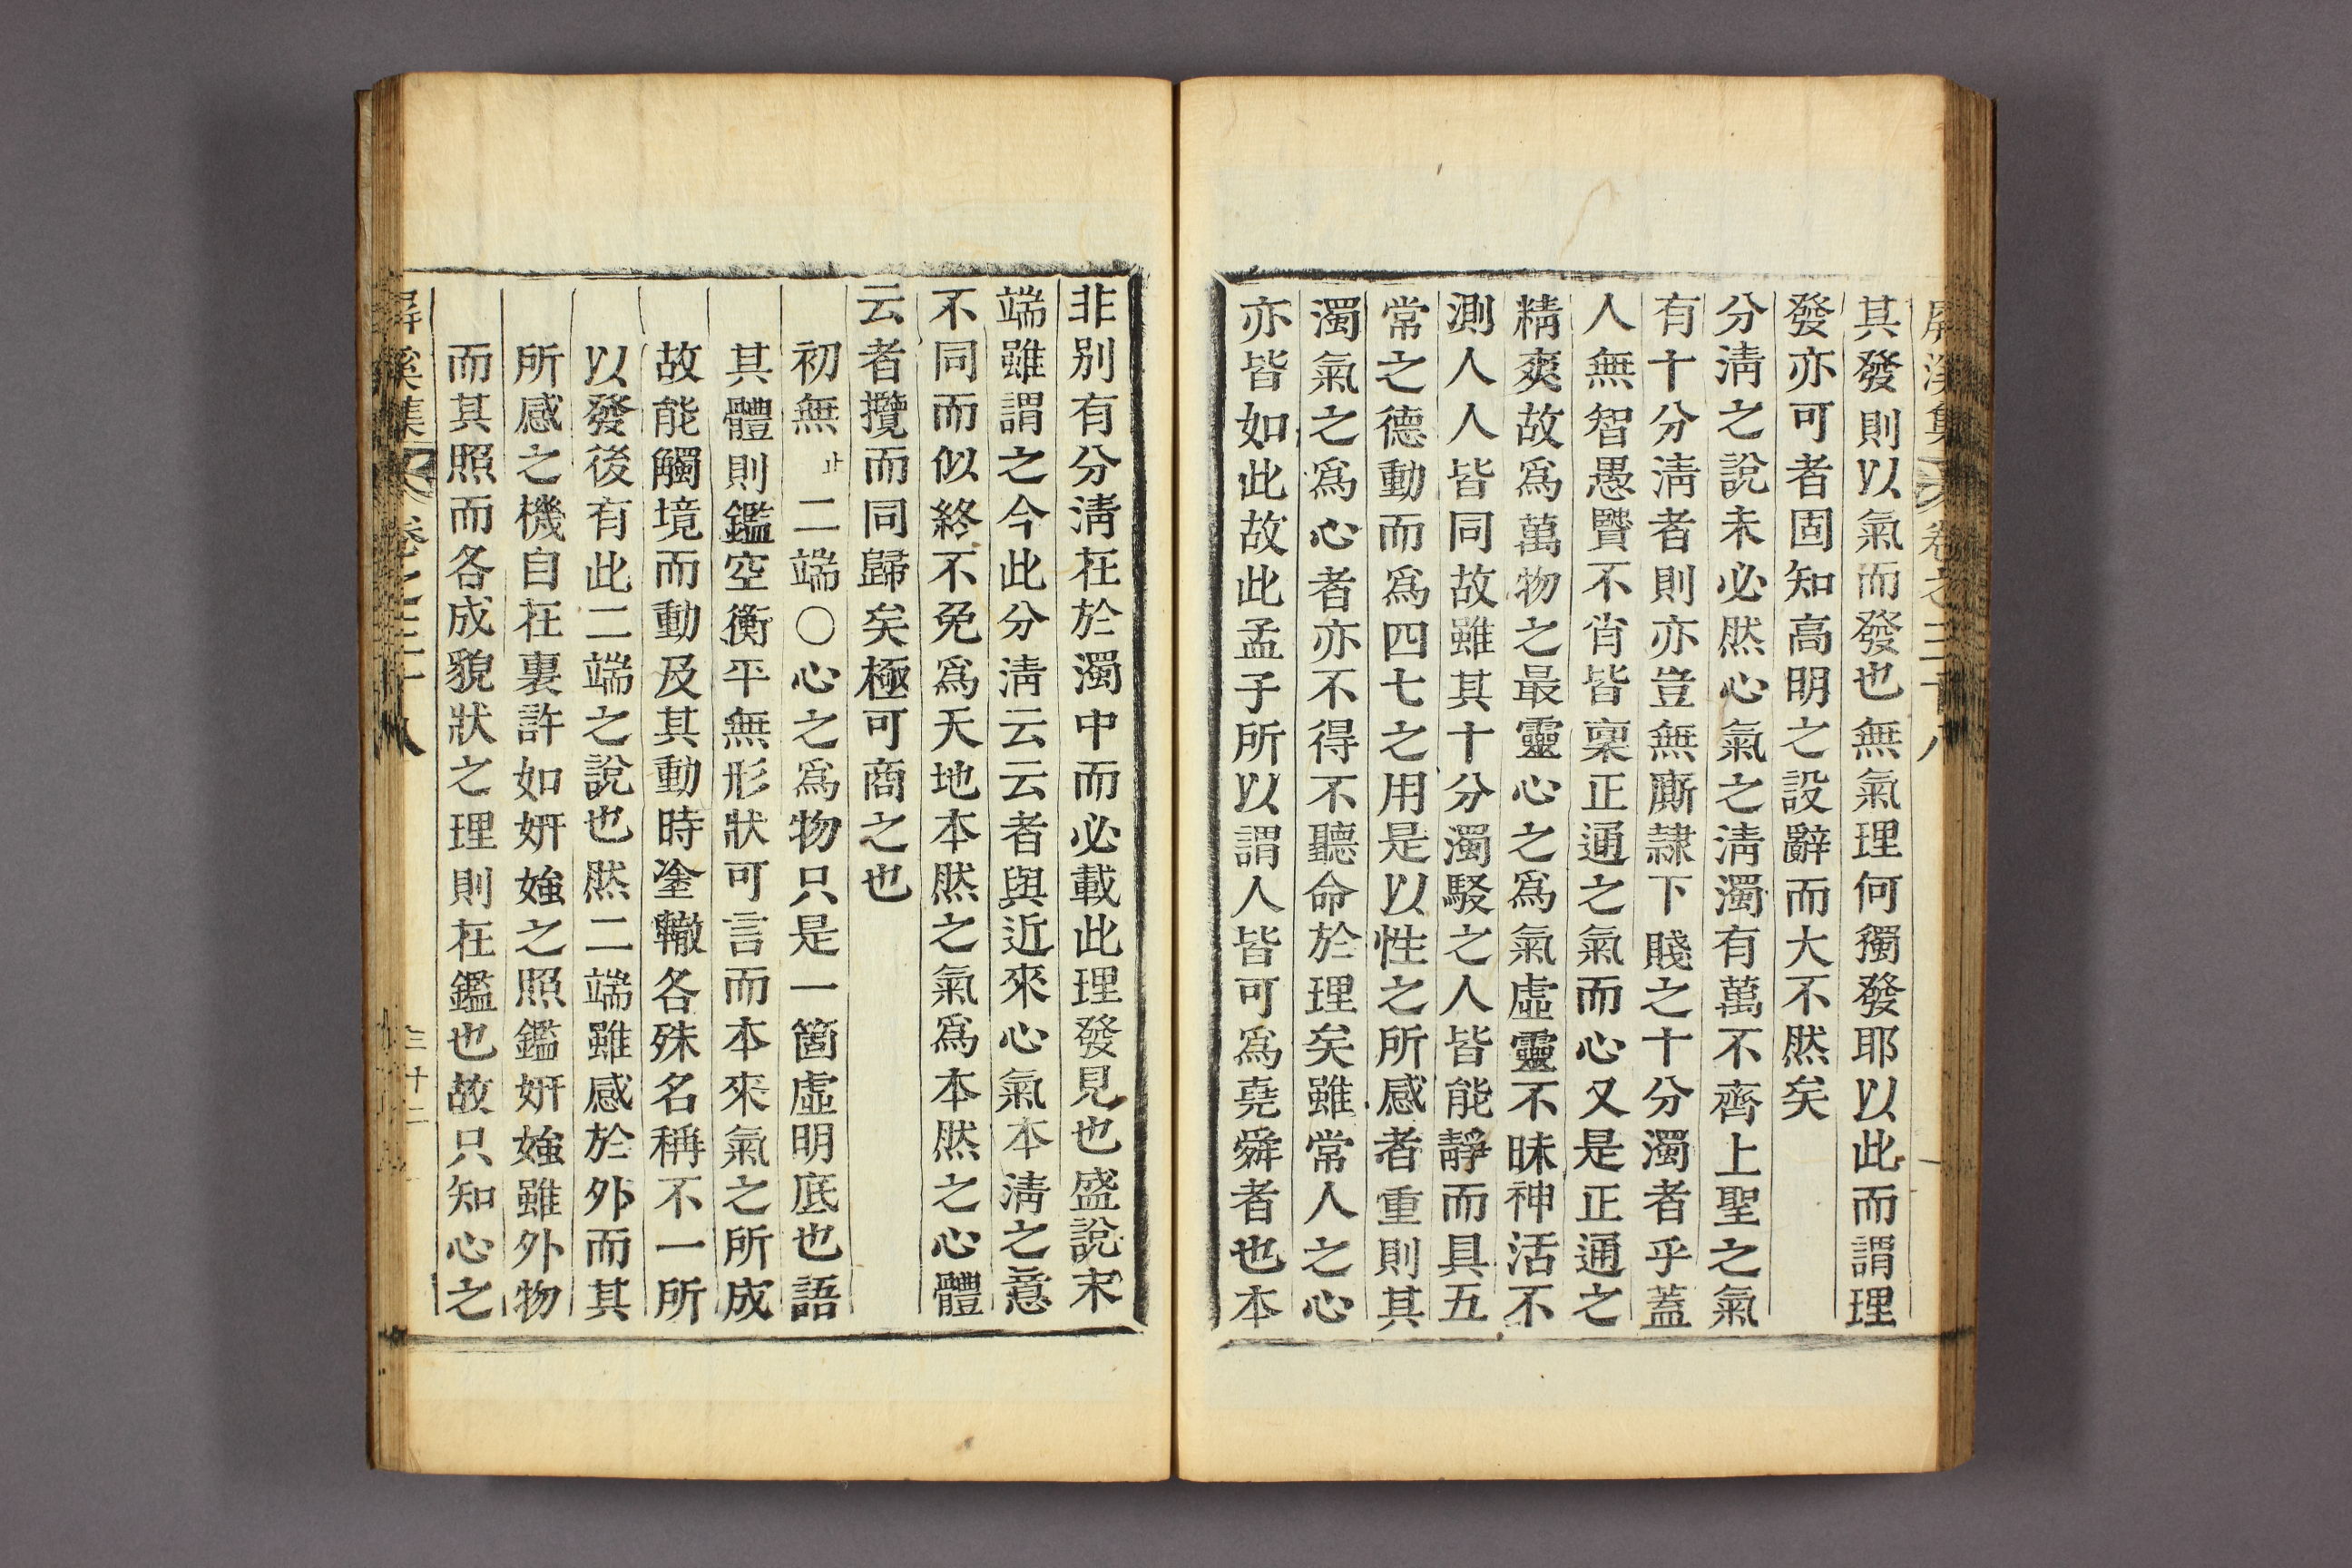 屛溪集 卷之三十八
其發則以氣而發也無氣理何獨發耶以此而謂理
發亦可者固知高明之設辭而大不然矣
分淸之說未必然心氣之淸濁有萬不齊上聖之氣
有十分淸者則亦豈無廝隷下賤之十分濁者乎蓋
人無智愚賢不肖皆稟正通之氣而心又是正通之
精爽故爲萬物之最靈心之爲氣虛靈不昧神活不
測人人皆同故雖其十分濁駁之人皆能靜而具五
常之德動而爲四七之用是以性之所感者重則其
濁氣之爲心者亦不得不聽命於理矣雖常人之心
亦皆如此故此孟子所以謂人皆可爲堯舜者也本
非別有分淸在於濁中而必載此理發見也盛說末
端雖謂之今此分淸云云者與近來心氣本淸之意
不同而似終不免爲天地本然之氣爲本然之心體
云者攬而同歸矣極可商之也
初無 止 二端○心之爲物只是一箇虛明底也語
其體則鑑空衡平無形狀可言而本來氣之所成
故能觸境而動及其動時塗轍各殊名稱不一所
以發後有此二端之說也然二端雖感於外而其
所感之機自在裏許如姸媸之照鑑姸媸雖外物
而其照而各成貌狀之理則在鑑也故只知心之
屛溪集 卷之三十八 三十二